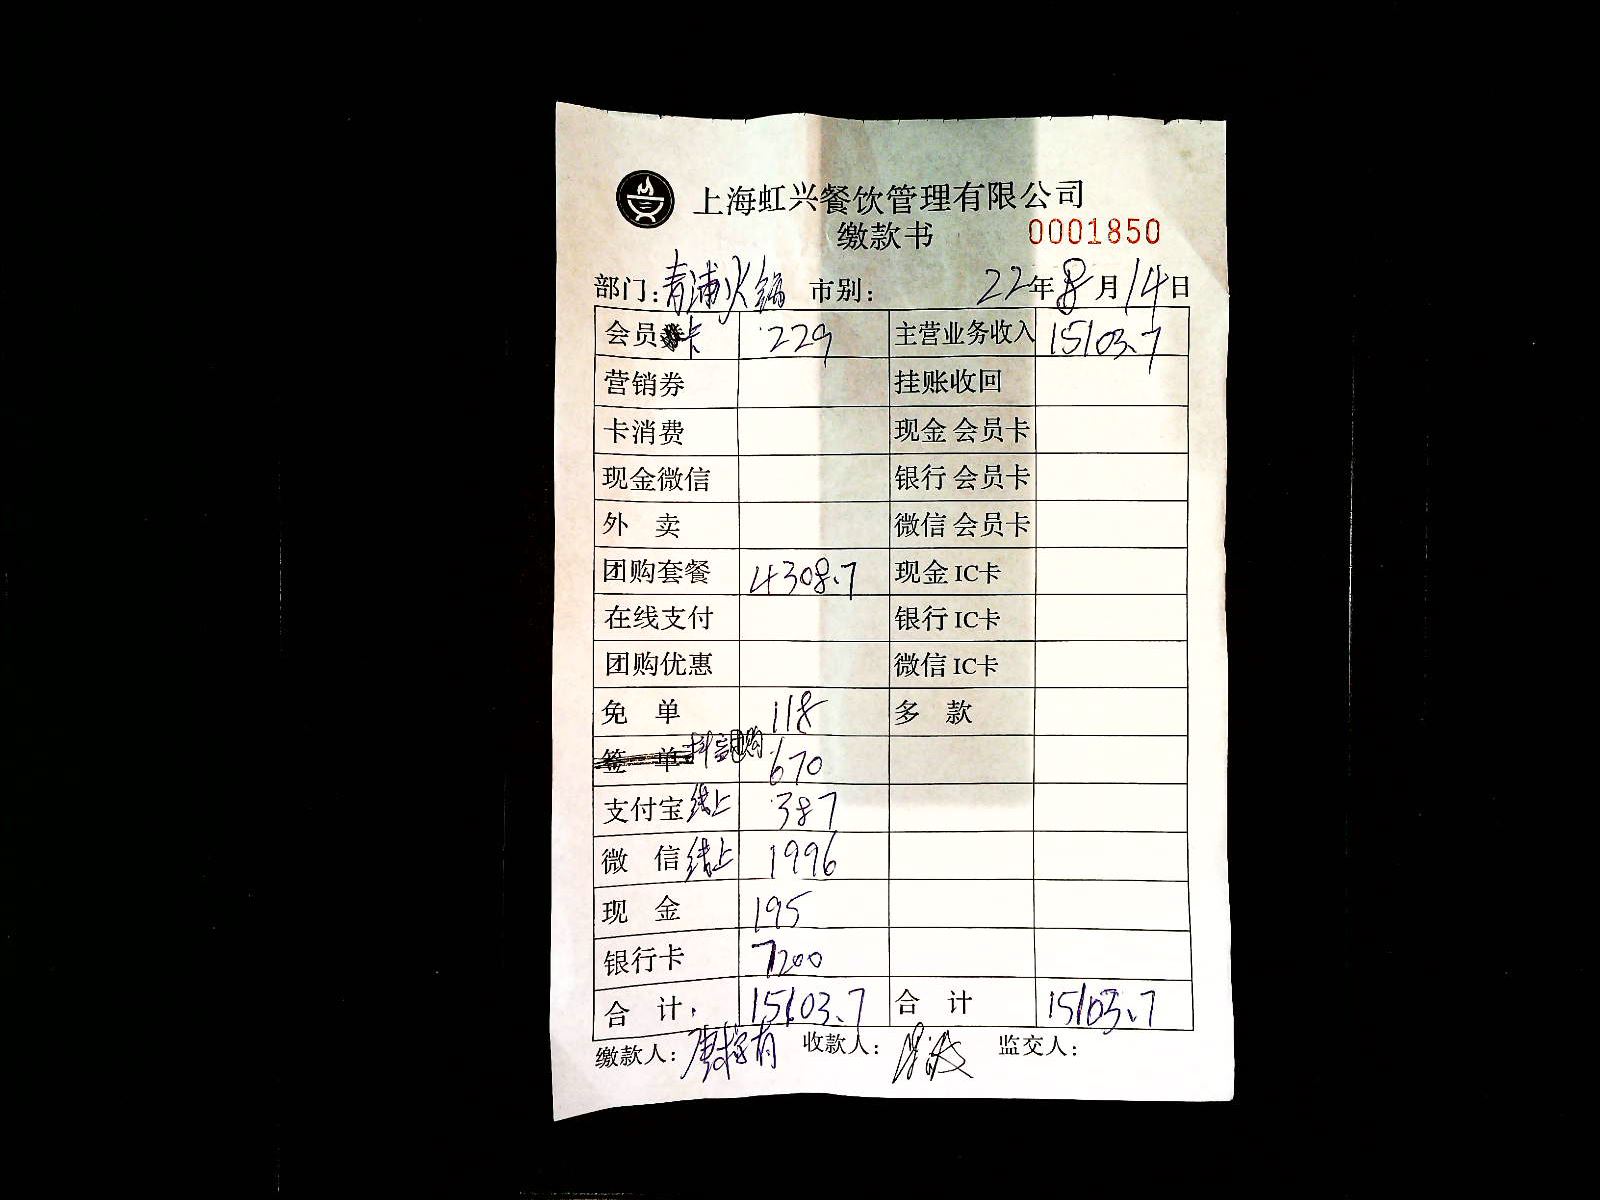 上海虹兴餐饮管理有限公司
缴款书 0001850
部门:青浦火锅 市别: 22年8月14日
会员卡 229 主营业务收入 15103.7
营销券 挂账收回
卡消费 现金会员卡
现金微信 银行会员卡
外卖 微信会员卡
团购套餐 4308.7 现金IC卡
在线支付 银行IC卡
团购优惠 微信IC卡
免单 118 多款
签单 抖音团购 670
支付宝线上 387
微信线上 1996
现金 195
银行卡 7200
合计 15103.7 合计 15103.7
缴款人: 收款人: 监交人: